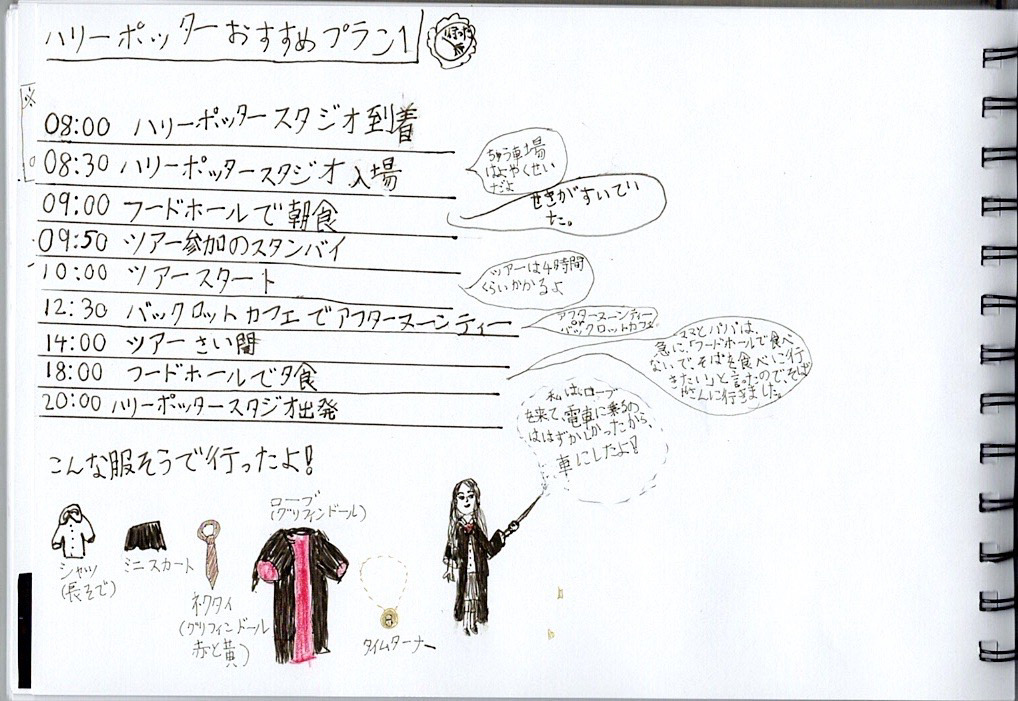 ハリーポッターおすすめプラン1
※
08:00 ハリーポッタースタジオ到着
08:30 ハリーポッタースタジオ入場
ちゅう車場
はよやくせい
だよ
09:00 フードホールで朝食
せきがすいてい
た。
09:50 ツアー参加のスタンバイ
10:00 ツアースタート
ツアーは4時間
くらいかかるよ
12:30 バックロットカフェでアフターヌーンティー
アフターヌーンティー
バックロットカフェ
14:00 ツアーさい開
18:00 フードホールで夕食
ママとパパは、
急に、「フードホールで食べ
ないで、そばを食べに行
きたい」と言ったので、そば
やさんに行きました。
20:00 ハリーポッタースタジオ出発
私はローブ
を来て、電車に乗るの
ははずかしかったから、
車にしたよ!
こんな服そうで行ったよ!
シャツ
(長そで)
ミニスカート
ネクタイ
(グリフィンドール
赤と黄)
ローブ
(グリフィンドール)
タイムターナー